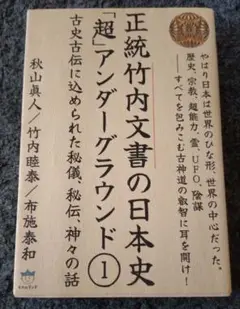 やはり日本は世界のひな形、世界の中心だった。
歴史、宗教、超能力、霊、UFO、陰謀
──すべてを包みこむ古神道の叡智に耳を開け!
正統竹内文書の日本史
「超」アンダーグラウンド①
古史古伝に込められた秘儀、秘伝、神々の話
秋山眞人/竹内睦泰/布施泰和